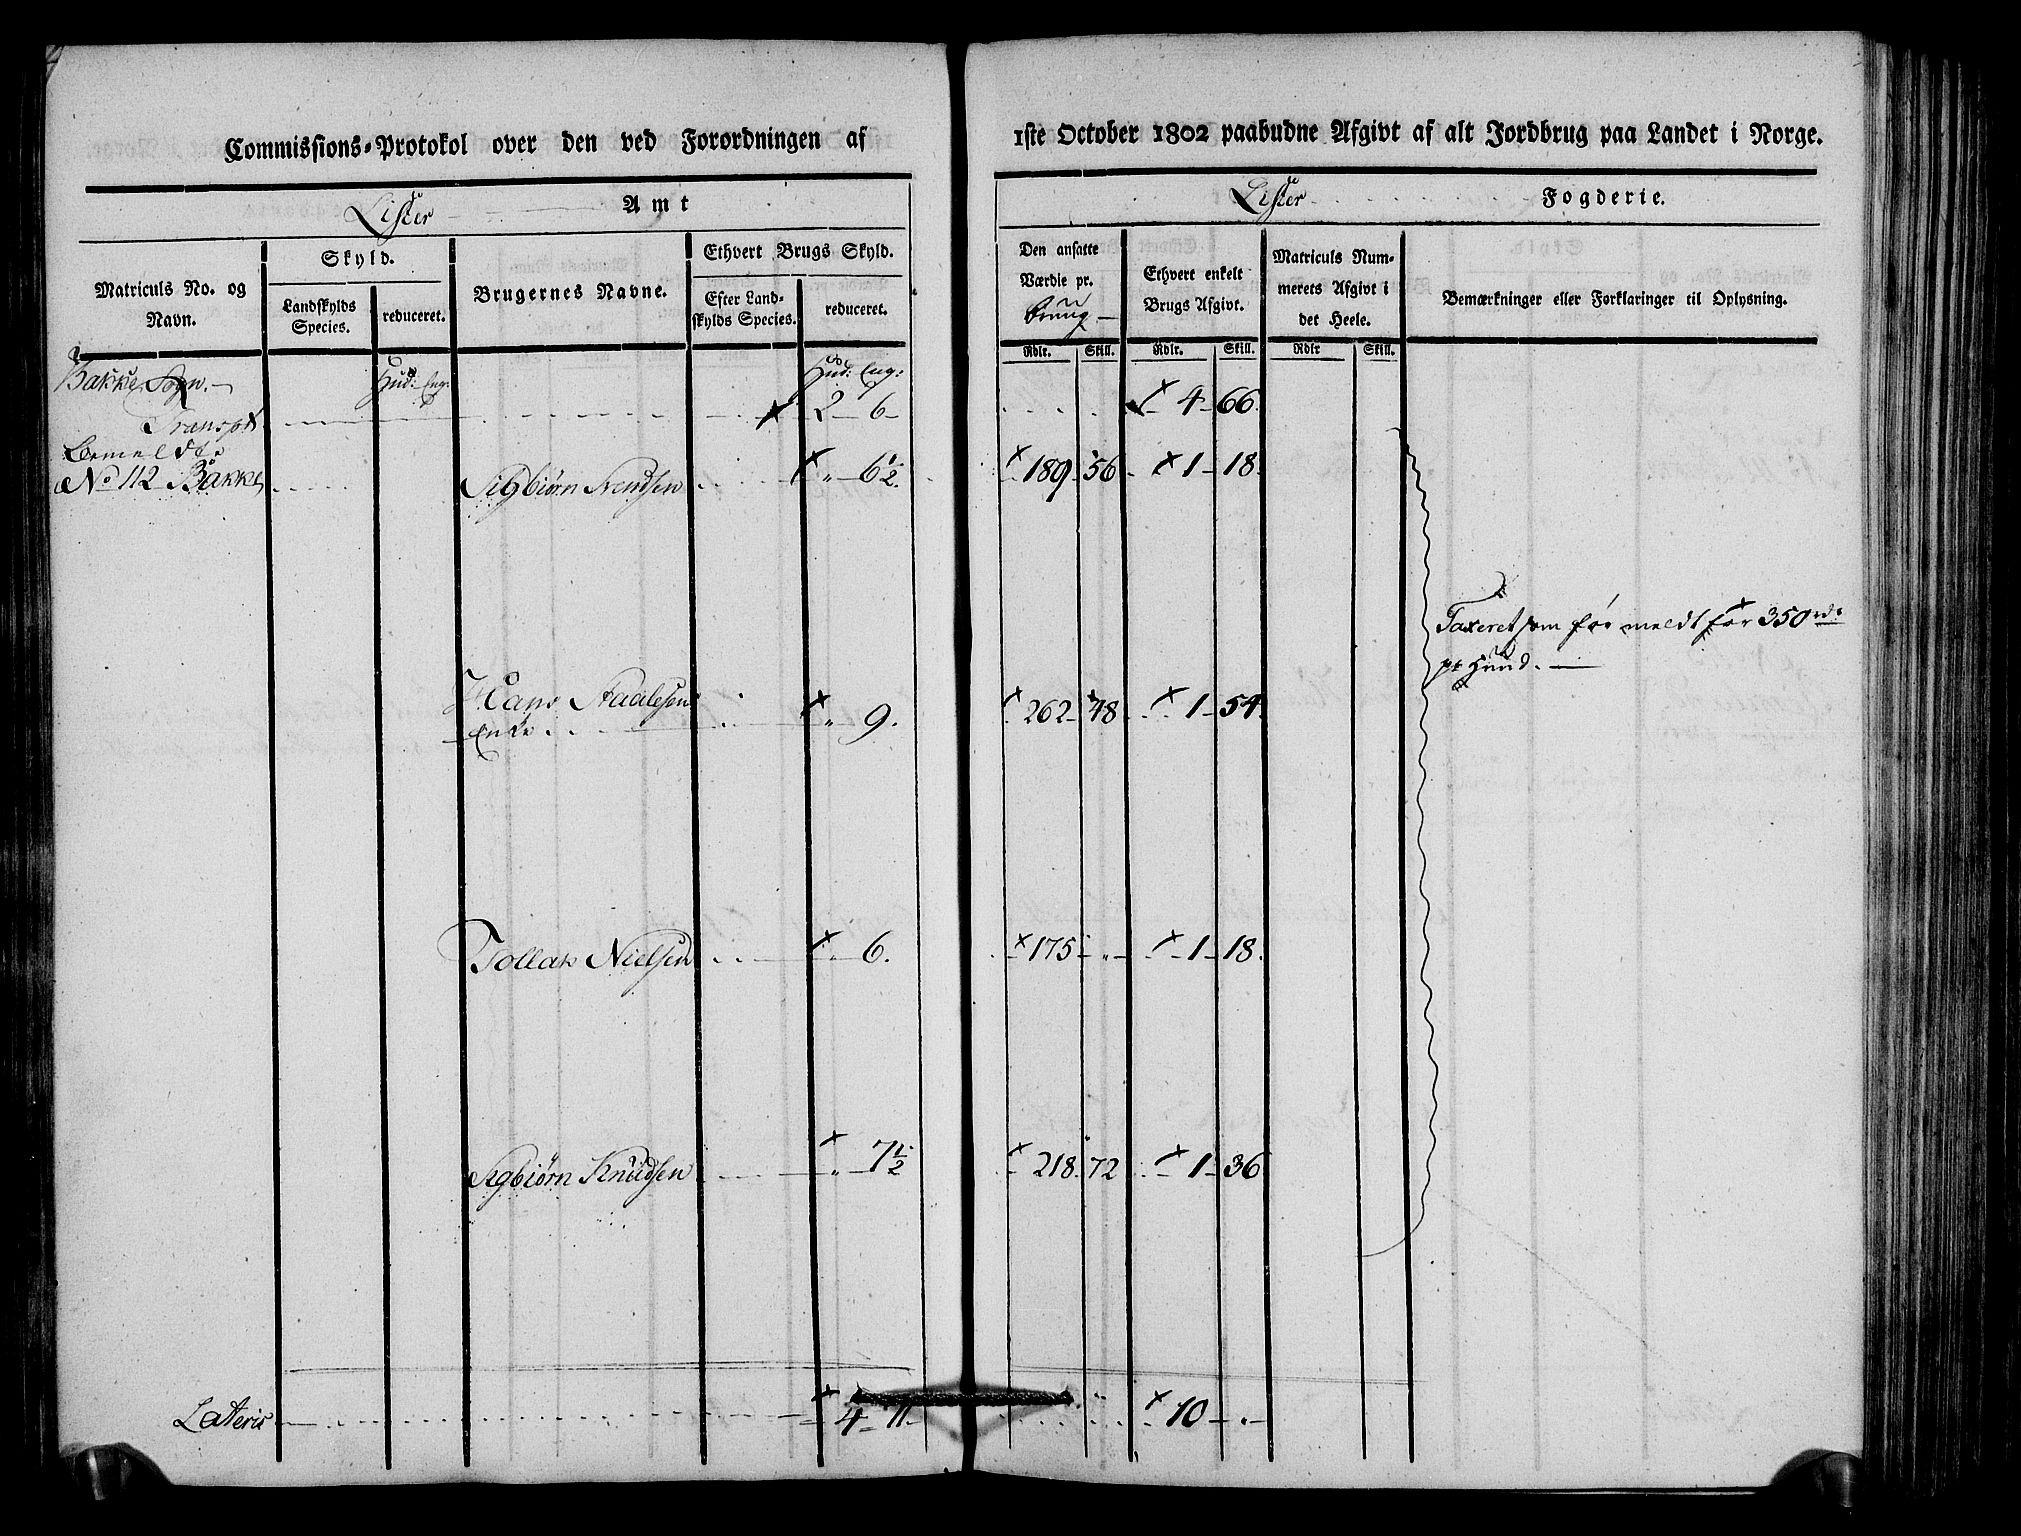 Commissions-Protokol over den ved Forordningen af 1ste October 1802 paabudne Afgivt af alt Jordbrug paa Landet i Norge.
Lister Amt
Lister Fogderie.
Matriculs No. og Navn.
Skyld.
Landskylds Species.
reduceret.
Brugernes Navne.
Ethvert Brugs Skyld.
Efter Landskylds Species.
reduceret.
Den ansatte Værdie pr. Brug
Ethvert enkelt Brugs Afgivt.
Matriculs Nummerets Afgivt i det Heele.
Bemærkninger eller Forklaringer til Oplysning.
Rdlr. Skill. Rdlr. Skill. Rdlr Skill.
Bakke Sogn. Hud: Eng: Hud: Eng:
Transpt 2 6 4 66
Bemeldte
No 112 Bakke Sigbiørn Svendsen " 6½. 189 56 1 18.
Taxeret som før meldt for 350 rd.
pr Hud.
Hans Staalesen
Enke " 9. 262 48 1 54.
Tollak Nielsen " 6. 175 " 1 18.
Sigbiørn Knudsen " 7½ 218 72 1 36
Lateris 4 11. 10 "